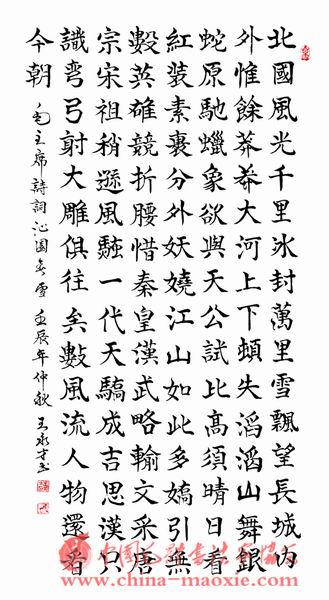 北國風光千里冰封萬里雪飄望長城内
外惟餘莽莽大河上下頓失滔滔山舞銀
蛇原馳蠟象欲與天公試比髙須晴日看
紅装素裹分外妖嬈江山如此多嬌引無
數英雄競折腰惜秦皇漢武略輸文采唐
宗宋祖稍遜風騷一代天驕成吉思漢只
識彎弓射大雕俱往矣數風流人物還看
今朝
毛主席詩詞沁園春雪壬辰年仲秋王永才书
www.china-maoxie.com